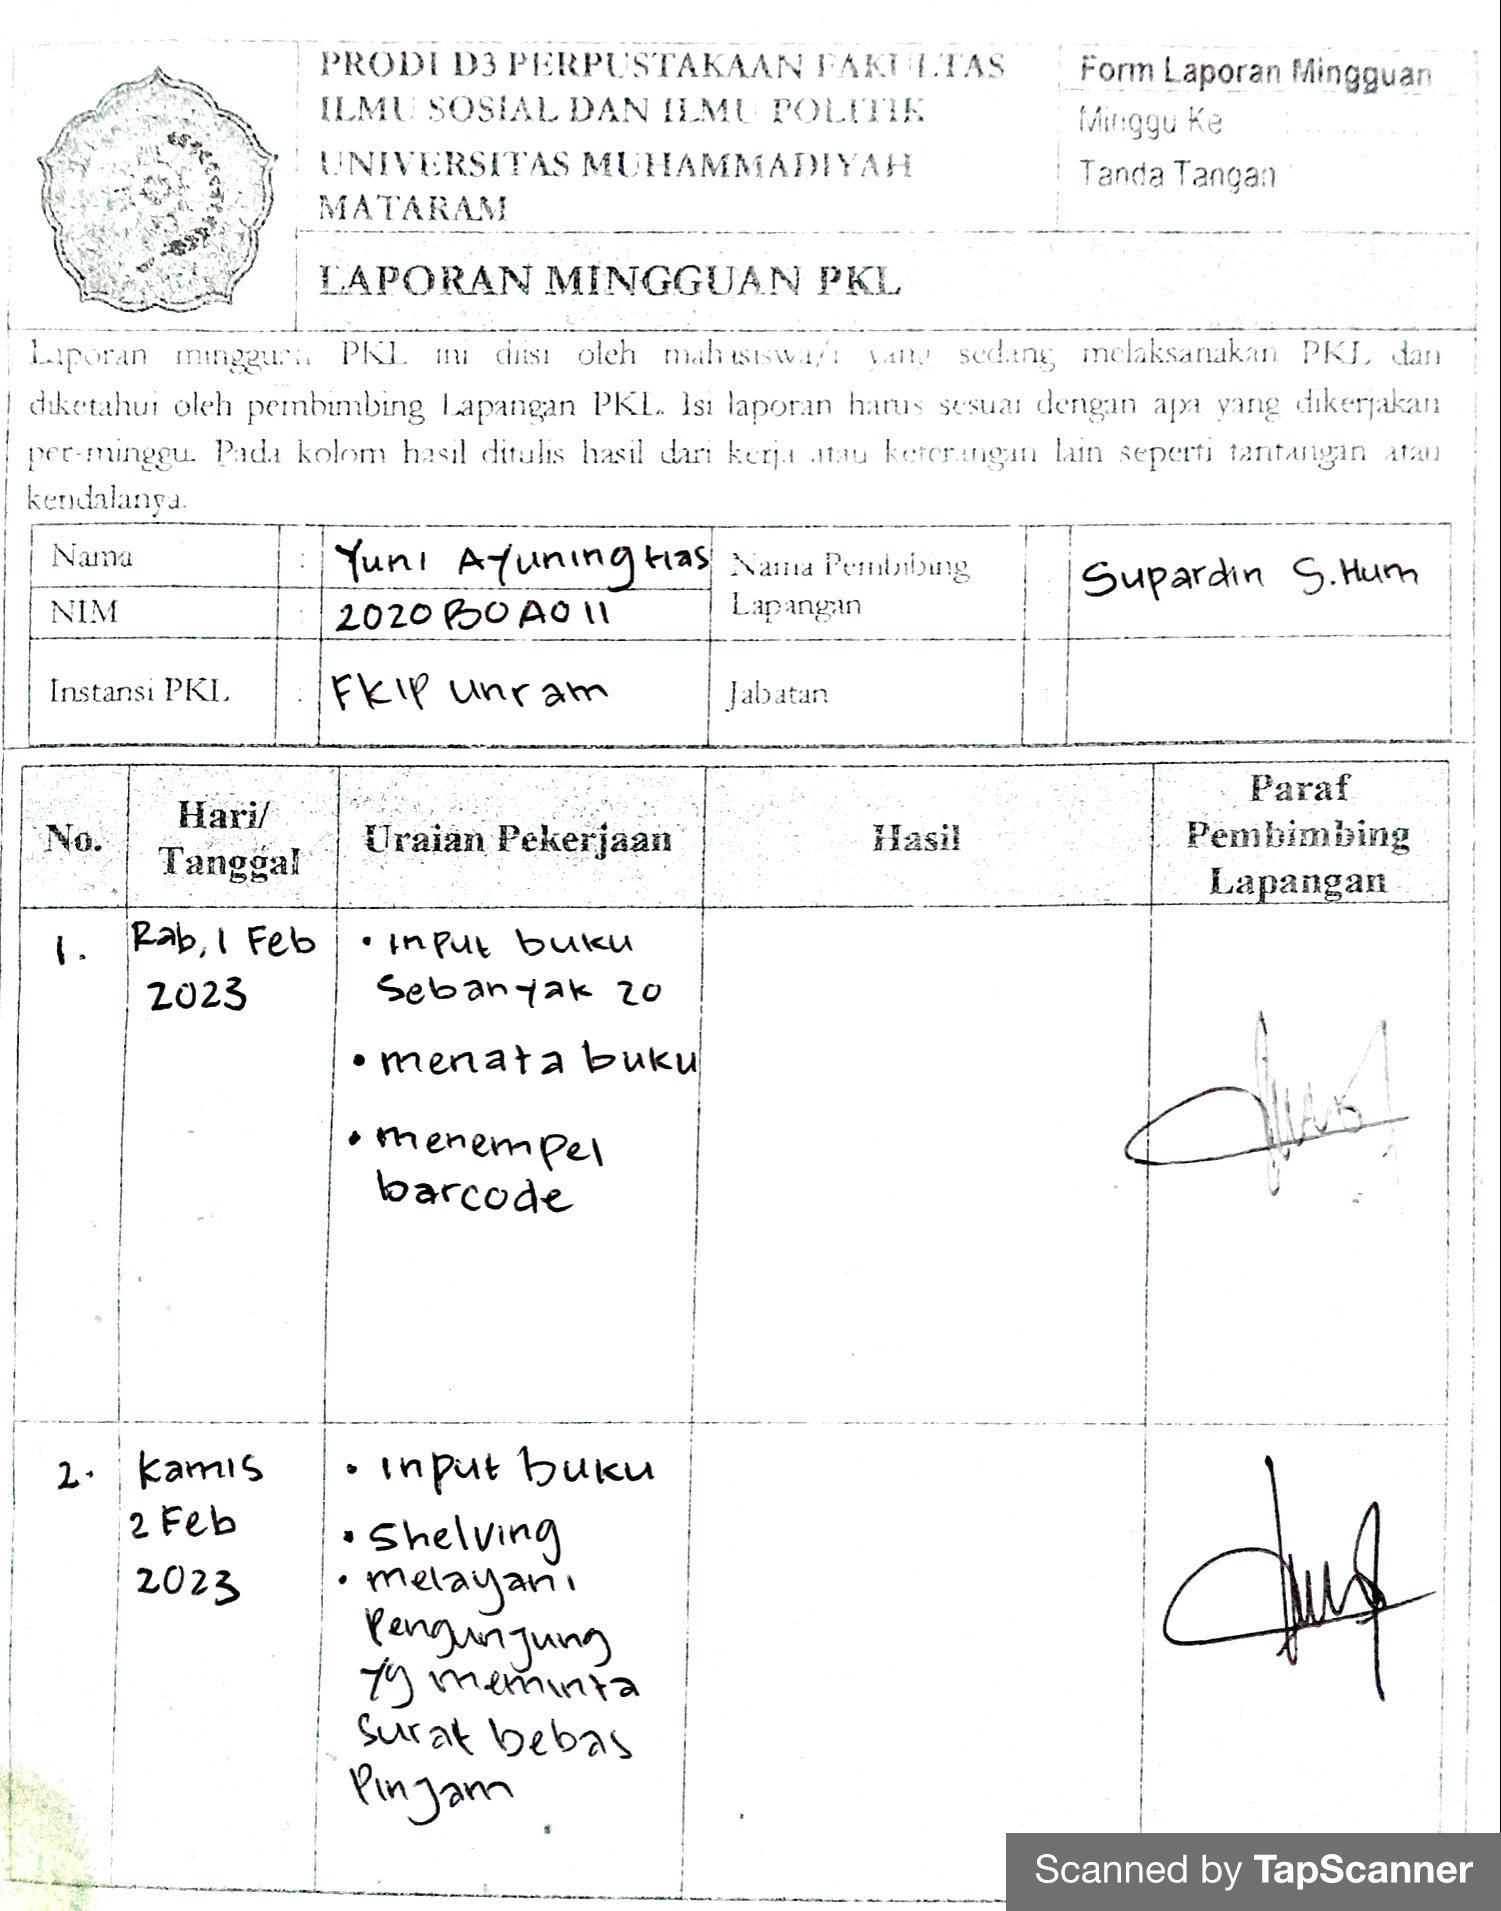 PRODI D3 PERPUSTAKAAN FAKULTAS
ILMU SOSIAL DAN ILMU POLITIK
UNIVERSITAS MUHAMMADIYAH
MATARAM
Form Laporan Mingguan
Minggu Ke :
Tanda Tangan :
LAPORAN MINGGUAN PKL
Laporan mingguan PKL ini diisi oleh mahasiswa/i yang sedang melaksanakan PKL dan
diketahui oleh pembimbing Lapangan PKL. Isi laporan harus sesuai dengan apa yang dikerjakan
per-minggu. Pada kolom hasil ditulis hasil dari kerja atau keterangan lain seperti tantangan atau
kendalanya.
Nama : Yuni Ayuningtias
NIM : 2020B0A011
Nama Pembibing
Lapangan
: Supardin S.Hum
Instansi PKL : FKIP Unram
Jabatan :
No.
Hari/
Tanggal
Uraian Pekerjaan
Hasil
Paraf
Pembimbing
Lapangan
1.
Rab, 1 Feb
2023
• input buku
sebanyak 20
• menata buku
• menempel
barcode
2.
Kamis
2 Feb
2023
• input buku
• Shelving
• melayani
Pengunjung
yg meminta
Surat bebas
Pinjam
Scanned by TapScanner